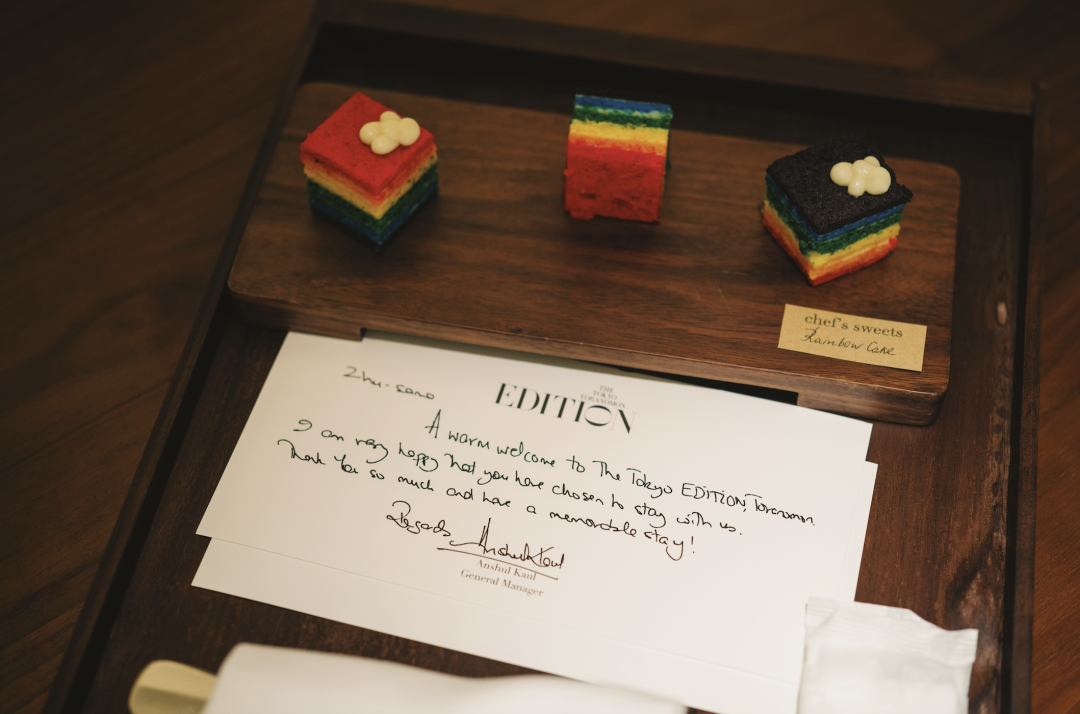 chef's sweets
Rainbow Cake
Zhu-sama
THE
TOKYO
TORANOMON
EDITION
A warm welcome to The Tokyo EDITION, Toranomon.
I am very happy that you have chosen to stay with us.
Thank You so much and have a memorable stay!
Regards
Anshul Kaul
Anshul Kaul
General Manager